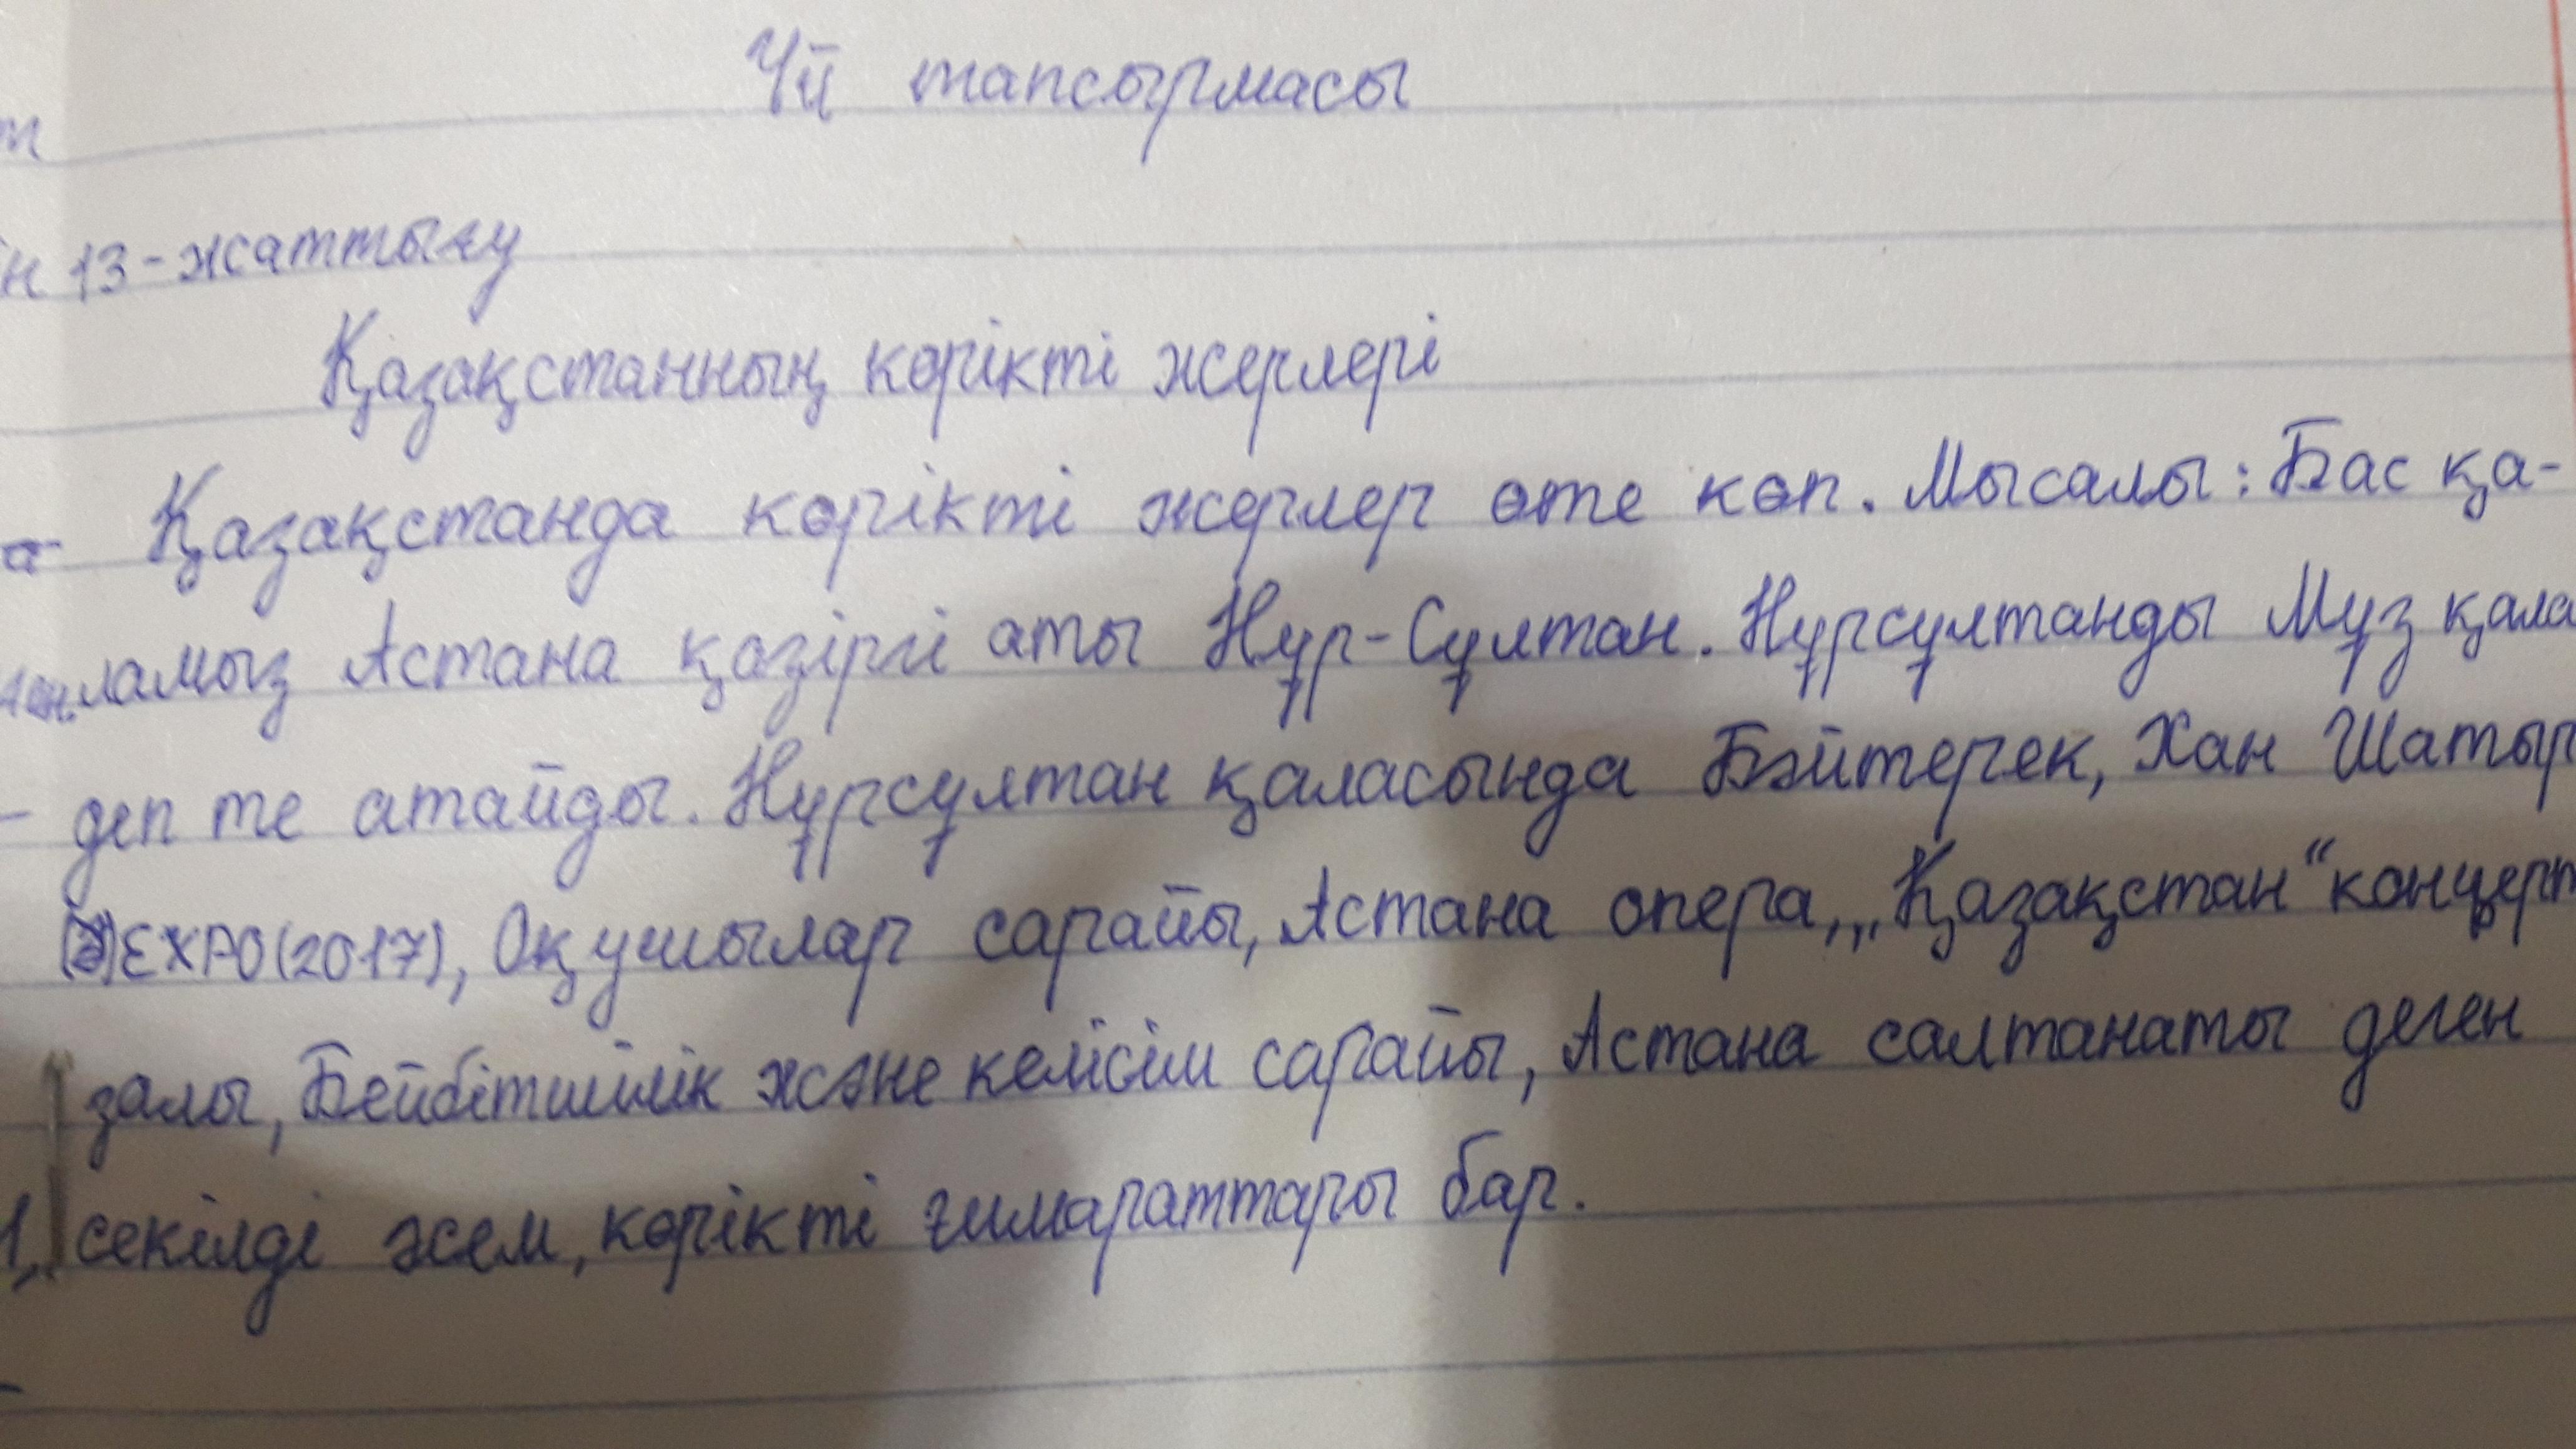 Үй тапсырмасы
13-жаттығу
Қазақстанның көрікті жерлері
Қазақстанда көрікті жерлер өте көп. Мысалы: Бас қа-
ламыз Астана қазіргі аты Нұр-Сұлтан. Нұрсұлтанды Мұз қала
деп те атайды. Нұрсұлтан қаласында Бәйтерек, Хан Шатыр
EXPO(2017), Оқушылар сарайы, Астана опера, „Қазақстан“ концерт
залы, Бейбітшілік және келісім сарайы, Астана салтанаты деген
секілді әсем, көрікті ғимараттары бар.